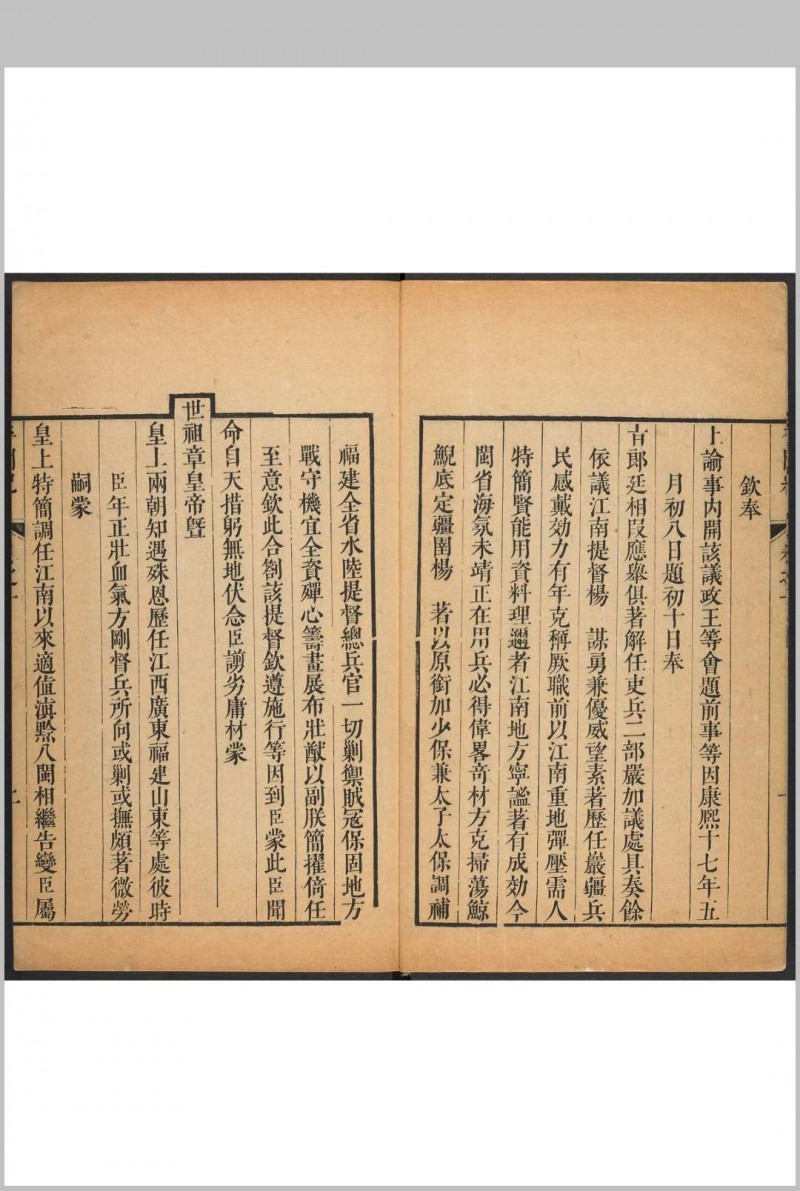 欽奉
上諭事內開該議政王等會題前事等因康熙十七年五
月初八日題初十日奉
旨郎廷相叚應舉俱著解任吏兵二部嚴加議處具奏餘
依議江南提督楊 謀勇兼優威望素著歷任巖疆兵
民感戴効力有年克稱厥職前以江南重地彈壓需人
特簡賢能用資料理邇者江南地方寧謐著有成効今
閩省海氛未靖正在用兵必得偉畧竒材方克掃蕩鯨
鯢底定疆圉楊 著以原銜加少保兼太子太保調補
福建全省水陸提督總兵官一切剿禦賊寇保固地方
戰守機宜全資殫心籌畫展布壯猷以副朕簡擢倚任
至意欽此合劄該提督欽遵施行等因到臣蒙此臣聞
命自天措躬無地伏念臣謭劣庸材蒙
世祖章皇帝曁
皇上兩朝知遇殊恩歷任江西廣東福建山東等處彼時
臣年正壯血氣方剛督兵所向或剿或撫頗著微勞
嗣蒙
皇上特簡調任江南以來適值滇黔八閩相繼告變臣屬